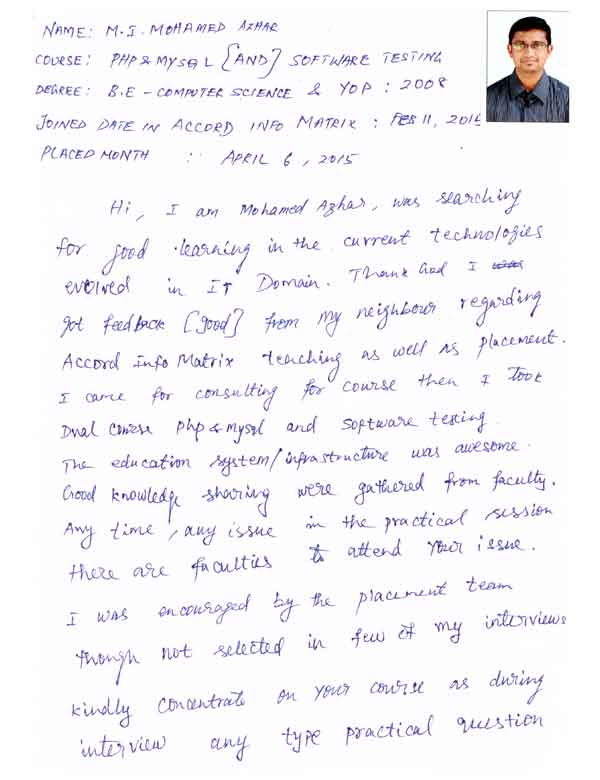 NAME: M.I. MOHAMED AZHAR
COURSE: PHP & MYSQL [AND] SOFTWARE TESTING
DEGREE: B.E - COMPUTER SCIENCE & YOP : 2008
JOINED DATE IN ACCORD INFO MATRIX : FEB 11, 2015
PLACED MONTH : APRIL 6, 2015
Hi, I am Mohamed Azhar, was searching
for good learning in the current technologies
evolved in IT Domain. Thank God I
got feedback [good] from my neighbour regarding
Accord Info Matrix teaching as well as placement.
I came for consulting for course then I took
Dual course php & mysql and software testing.
The education system/infrastructure was awesome.
Good knowledge sharing were gathered from faculty.
Any time, any issue in the practical session
there are faculties to attend your issue.
I was encouraged by the placement team
though not selected in few of my interviews
kindly concentrate on your course as during
interview any type practical question